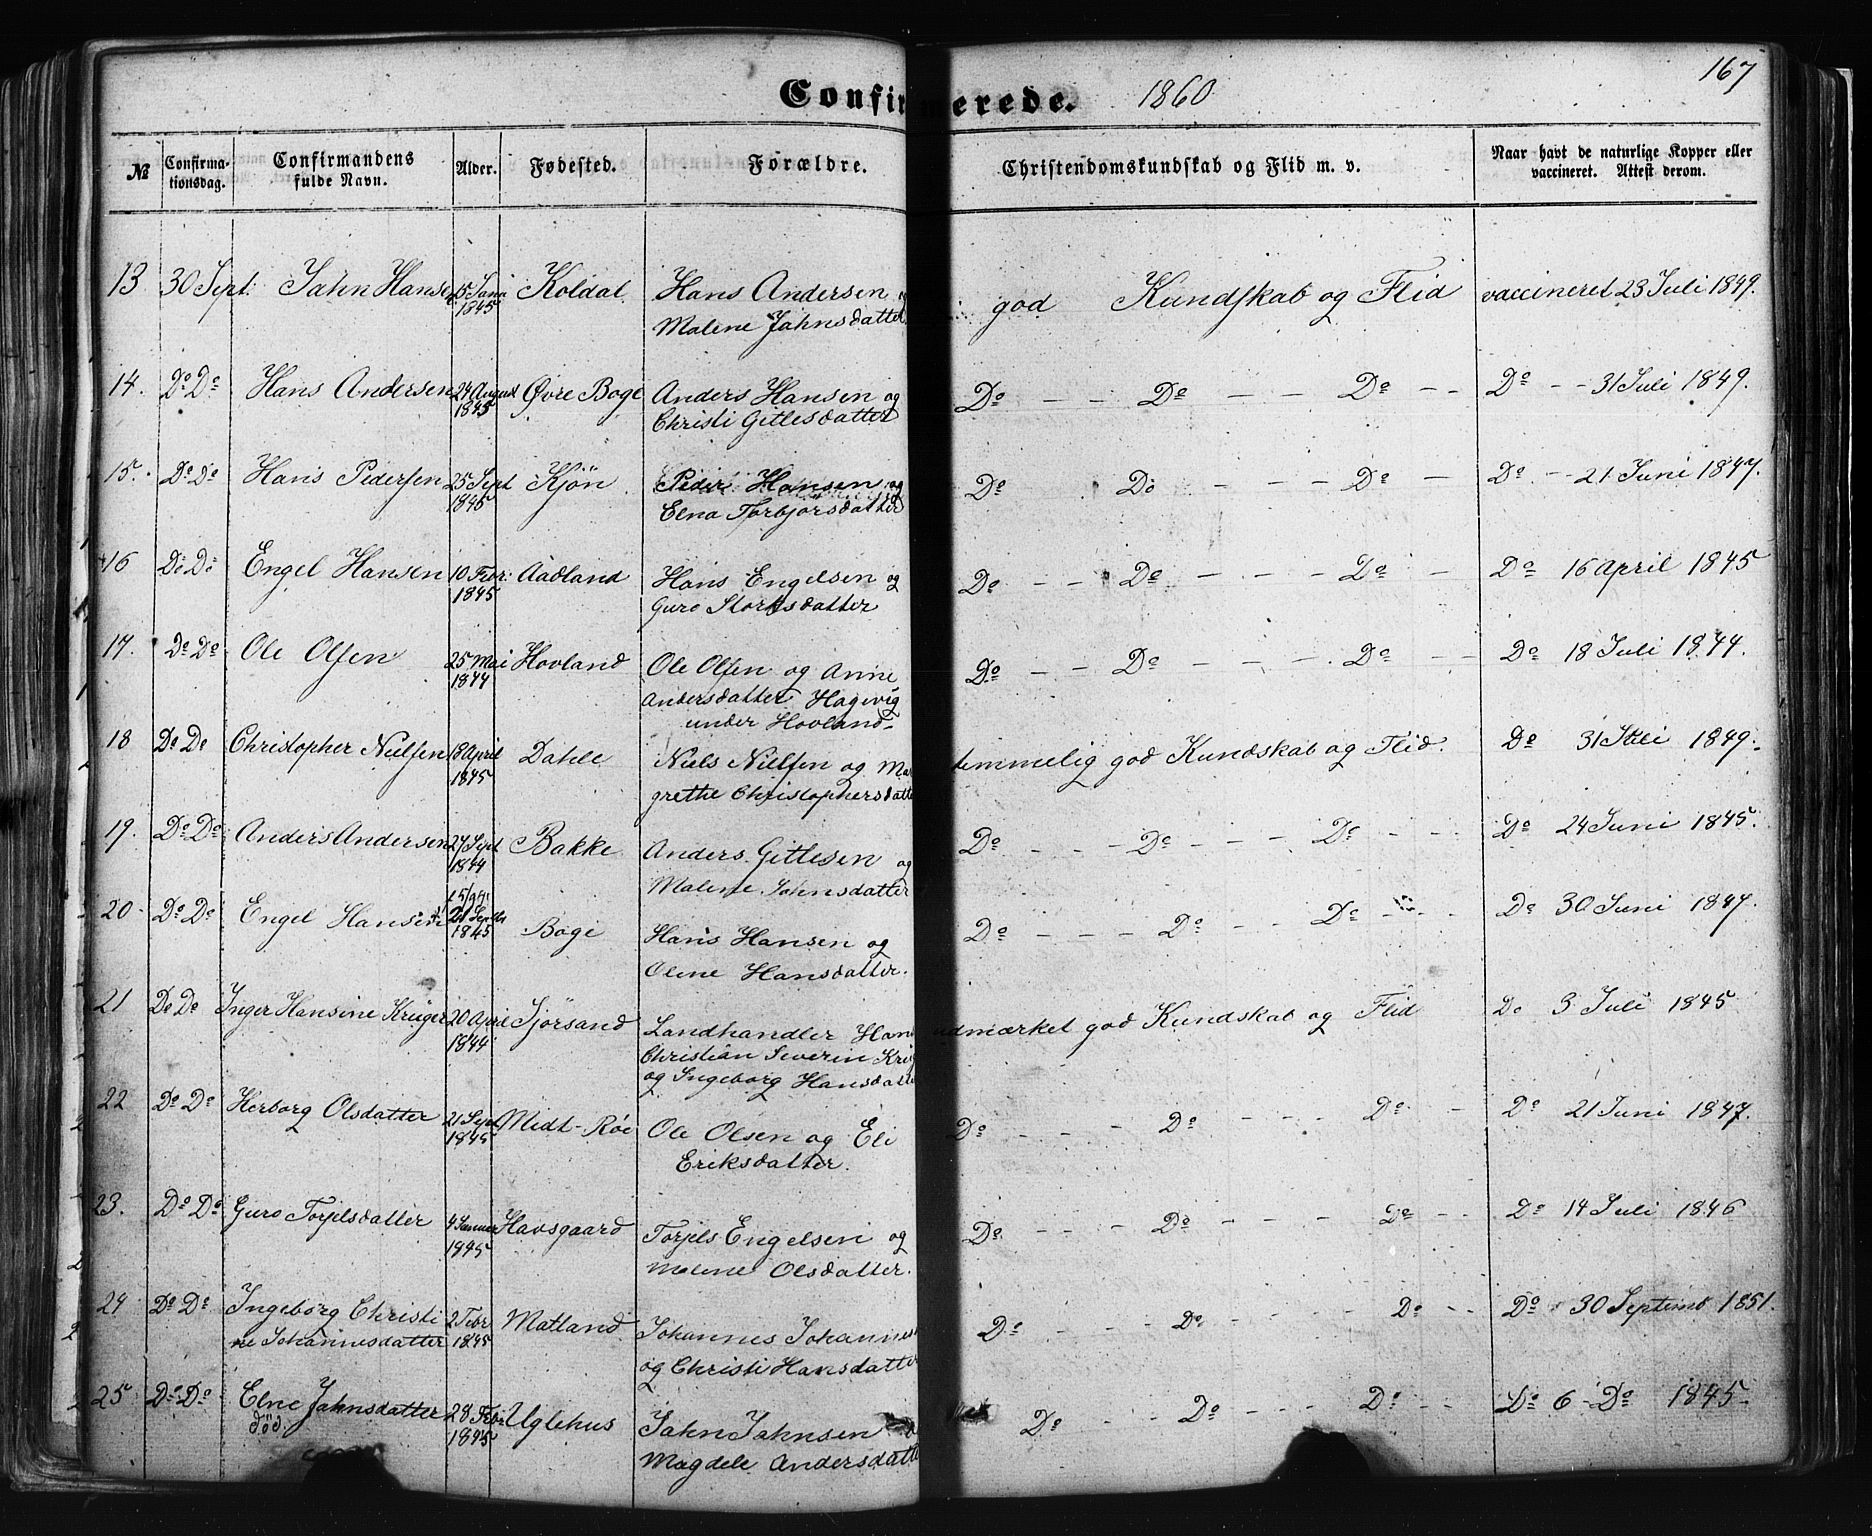 167
Confirmerede. 1860
№ Confirmationsdag. Confirmandens fulde Navn. Alder. Fødested. Forældre. Christendomskundskab og Flid m. v. Naar havt de naturlige Kopper eller vaccineret. Attest derom.
13 30 Sept: Jahn Hansen 15 1845 Koldal. Hans Andersen og god Kundskab og Flid vaccineret 23 Juli 1849.
Malene Jahnsdatter
14. Do Do Hans Andersen 24 August 1845 Øvre Boge Anders Hansen og Do – – Do – – Do – – Do – – 31 Juli 1849.
Christi Gitlesdatter
15. Do Do Hans Pedersen 25 Sept 1845 Kjön Peder Hansen og Do Do – – – Do – – Do – – 21 Juni 1847.
Elna Torbjorsdatter
16 Do Do Engel Hansen 10 Febr: 1845 Aadland Hans Engelsen og Do – – Do – – – Do – Do 16 April 1845
Guro Storksdatter
17. Do Do Ole Olsen 25 Mai 1844 Hovland Ole Olsen og Anne Do – – Do – – – Do – – Do 18 Juli 1844.
Andersdatter Hagevig
under Hovland
18 Do Do Christopher Nielsen 18 April 1845 Dahle Niels Nielsen og Mar temmelig god Kundskab og Flid. Do 31 Juli 1849.
grethe Christophersdatte
19. Do Do Anders Andersen 27 Sept 1844 Bakke Anders Gitlesen og Do – – – Do – – – Do – – – Do 24 Juni 1845.
Malene Jahnsdatter
20 Do Do Engel Hansen 1845 Boge Hans Hansen og Do – – – Do – – – Do – – – Do 30 Juni 1847.
Oline Hansdatter.
21 Do Do Inger Hansine Krüger 20 April 1844 Sjörsand Landhandler Han udmærket god Kundskab og Flid Do 3 Juli 1845
Christian Severin Krüg
og Ingeborg Hansdatte
22 Do Do Herborg Olsdatter 21 Sept 1845 Midt-Röe Ole Olsen og Eli Do – – – Do – – – Do – Do 21 Juni 1847.
Eriksdatter.
23. Do Do Guro Torjelsdatter 4 Januar 1845 Havsgaard Torjels Engelsen og Do – – – Do – – – Do – – Do 14 Juli 1846
Malene Olsdatter.
24 Do Do Ingeborg Christi 2 Febr 1845 Matland Johannes Johannes Do – – – Do – – – Do – – Do 30 Septemb 1851.
ne Johannesdatter og Christi Hansdatter
25 Do Do Elne Jahnsdatter 28 Febr 1845 Uglehus Jahn Jahnsen Do – – Do – – – Do – – Do 6 Do 1845
død. Magdele Andersdatte